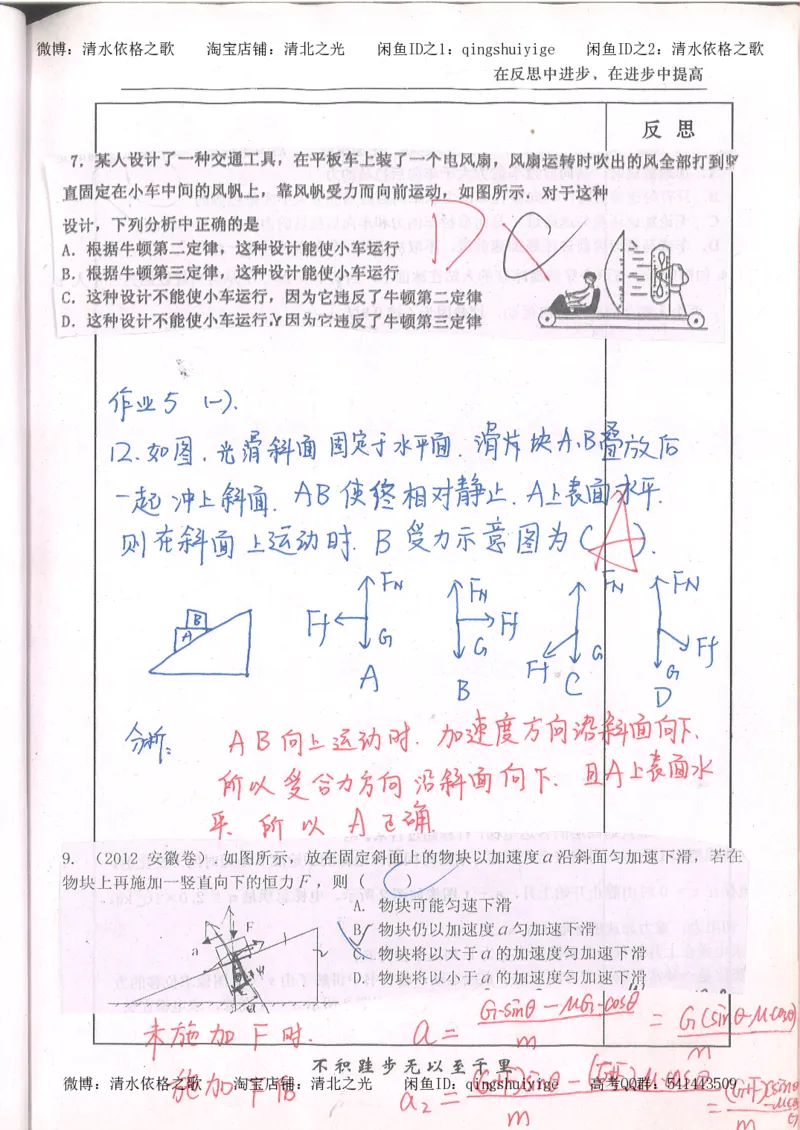 微博：清水依格之歌 淘宝店铺：清北之光 闲鱼ID之1：qingshuiyige 闲鱼ID之2：清水依格之歌
在反思中进步，在进步中提高
反 思
7. 某人设计了一种交通工具，在平板车上装了一个电风扇，风扇运转时吹出的风全部打到竖
直固定在小车中间的风帆上，靠风帆受力而向前运动，如图所示．对于这种
设计，下列分析中正确的是
A．根据牛顿第二定律，这种设计能使小车运行
B．根据牛顿第三定律，这种设计能使小车运行
C．这种设计不能使小车运行，因为它违反了牛顿第二定律
D．这种设计不能使小车运行，因为它违反了牛顿第三定律
D
作业5 (一).
12.如图．光滑斜面固定于水平面．滑片块A、B叠放后
一起冲上斜面．AB使终相对静止．A上表面水平．
则在斜面上运动时．B受力示意图为( A ).
FN FN FN FN
Ff Ff Ff Ff
G G G G
B
A
A B C D
分析：
AB向上运动时．加速度方向沿斜面向下．
所以受合力方向沿斜面向下．且A上表面水
平．所以A正确
9. （2012 安徽卷） 如图所示，放在固定斜面上的物块以加速度a沿斜面匀加速下滑，若在
物块上再施加一竖直向下的恒力F，则（ C ）
A. 物块可能匀速下滑
B. 物块仍以加速度a匀加速下滑
C. 物块将以大于a的加速度匀加速下滑
D. 物块将以小于a的加速度匀加速下滑
F
a
G
未施加F时． a = G·sinθ-μG·cosθ / m = G(sinθ-μcosθ) / m
不积跬步无以至千里
微博：清水依格之歌 淘宝店铺：清北之光 闲鱼ID：qingshuiyige 高考QQ群：541443509
施加F后 a₂ = (G+F)sinθ-(G+F)μcosθ / m = (G+F)(sinθ-μcosθ) / m